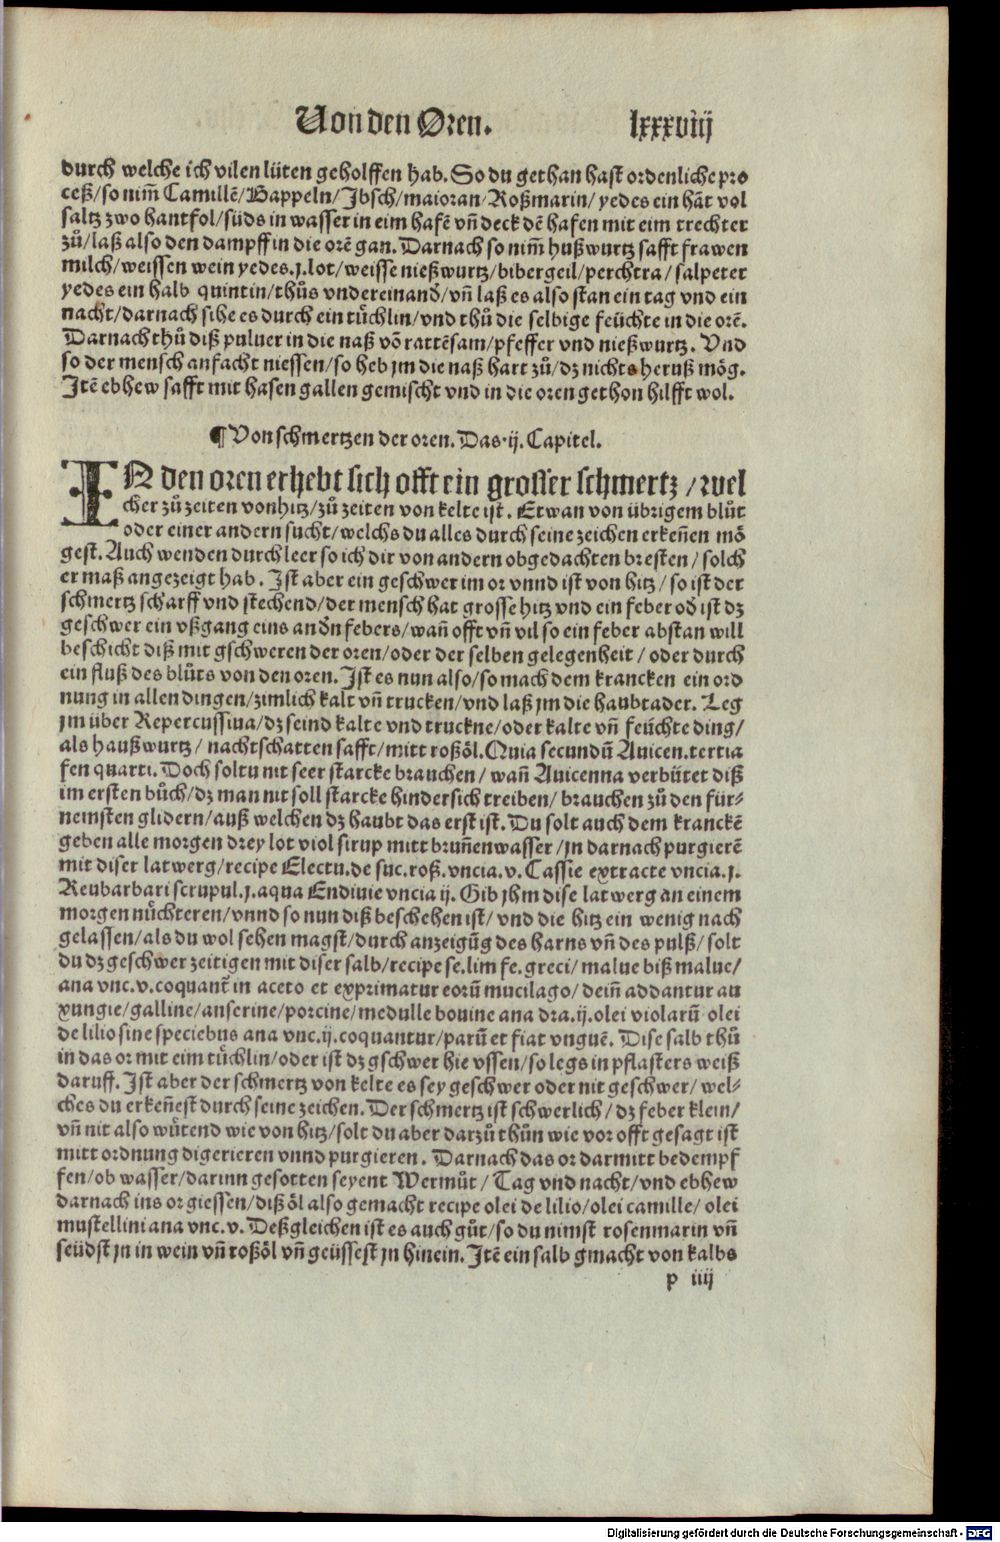 Von den Oren. lxxxviij
durch welche ich vilen lüten geholffen hab. So du gethan hast ordenliche pro
ceß/so nim̃ Camillẽ/Bappeln/Jbsch/maioran/Roßmarin/yedes ein hãt vol
saltz zwo hantfol/süds in wasser in eim hafẽ vñ deck dẽ hafen mit eim trechter
zů/laß also den dampff in die orẽ gan. Darnach so nim̃ hußwurtz safft frawen
milch/weissen wein yedes.j.lot/weisse nießwurtz/bibergeil/perchtra/salpeter
yedes ein halb quintin/thůs vndereinand̃/vñ laß es also stan ein tag vnd ein
nacht/darnach sihe es durch ein tüchlin/vnd thů die selbige feüchte in die orẽ.
Darnach thů diß puluer in die naß võ rattẽsam/pfeffer vnd nießwurtz. Vnd
so der mensch anfacht niessen/so heb jm die naß hart zů/dz nichts heruß mög.
Jtẽ ebhew safft mit hasen gallen gemischt vnd in die oren gethon hilfft wol.
¶Von schmertzen der oren. Das.ij. Capitel.
IN den oren erhebt sich offt ein grosser schmertz/wel
cher zů zeiten von hitz/zů zeiten von kelte ist. Etwan von übrigem blůt
oder einer andern sucht/welchs du alles durch seine zeichen erkeñen mö
gest. Auch wenden durch leer so ich dir von andern obgedachten bresten/solch
er maß angezeigt hab. Jst aber ein geschwer im or vnnd ist von hitz/so ist der
schmertz scharff vnd stechend/der mensch hat grosse hitz vnd ein feber od̃ ist dz
geschwer ein vßgang eins and̃n febers/wañ offt vñ vil so ein feber abstan will
beschicht diß mit gschweren der oren/oder der selben gelegenheit/oder durch
ein fluß des blůts von den oren. Jst es nun also/so mach dem krancken ein ord
nung in allen dingen/zimlich kalt vñ trucken/vnd laß jm die haubtader. Leg
jm über Repercussiua/dz seind kalte vnd truckne/oder kalte vñ feüchte ding/
als haußwurtz/nachtschatten safft/mitt roßöl. Quia secundũ Auicen.tertia
fen quarti. Doch soltu nit seer starcke brauchen/wañ Auicenna verbütet diß
im ersten bůch/dz man nit soll starcke hindersich treiben/brauchen zů den für-
nemsten glidern/auß welchen dz haubt das erst ist. Du solt auch dem kranckẽ
geben alle morgen drey lot viol sirup mitt bruñenwasser/jn darnach purgierẽ
mit diser latwerg/recipe Electu.de suc.roß.vncia.v. Cassie extracte vncia.j.
Reubarbari scrupul.j.aqua Endiuie vncia ij. Gib jhm dise latwerg an einem
morgen nüchteren/vnnd so nun diß beschehen ist/vnd die hitz ein wenig nach
gelassen/als du wol sehen magst/durch anzeigũg des harns vñ des pulß/solt
du dz geschwer zeitigen mit diser salb/recipe se.lim fe.greci/malue bißmalue/
ana vnc.v.coquant̃ in aceto et exprimatur eorũ mucilago/dein̄ addantur au
xungie/galline/anserine/porcine/medulle bouine ana dra.ij.olei violarũ olei
de lilio sine speciebus ana vnc.ij.coquantur/parũ et fiat vnguẽ. Dise salb thů
in das or mit eim tüchlin/oder ist dz gschwer hie vssen/so legs in pflasters weiß
daruff. Jst aber der schmertz von kelte es sey geschwer oder nit geschwer/wel-
ches du erkeñest durch seine zeichen. Der schmertz ist schwerlich/dz feber klein/
vñ nit also wütend wie von hitz/solt du aber darzů thůn wie vor offt gesagt ist
mitt ordnung digerieren vnnd purgieren. Darnach das or darmitt bedempf
fen/ob wasser/darinn gesotten seyent Wermůt/Tag vnd nacht/vnd ebhew
darnach ins or giessen/diß öl also gemacht recipe olei de lilio/olei camille/olei
mustellini ana vnc.v. Deßgleichen ist es auch gůt/so du nimst rosenmarin vñ
seüdst jn in wein vñ roßöl vñ geüssest jn hinein. Jtẽ ein salb gmacht von kalbs
p iiij
Digitalisierung gefördert durch die Deutsche Forschungsgemeinschaft - DFG